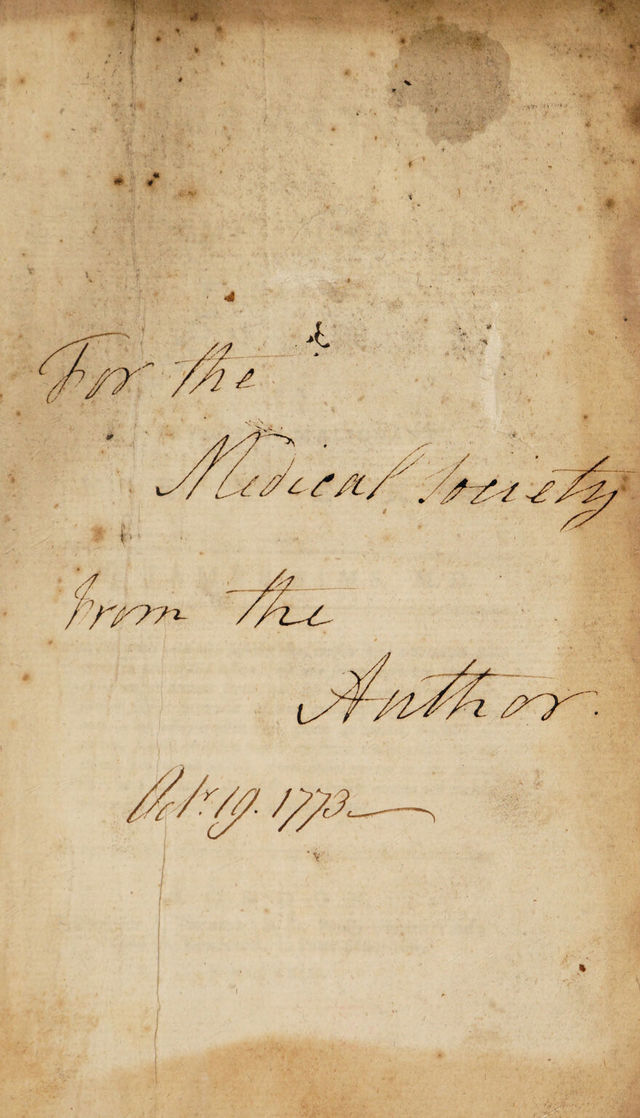 For the
Medical Society
from the
Author.
Octr. 19. 1773